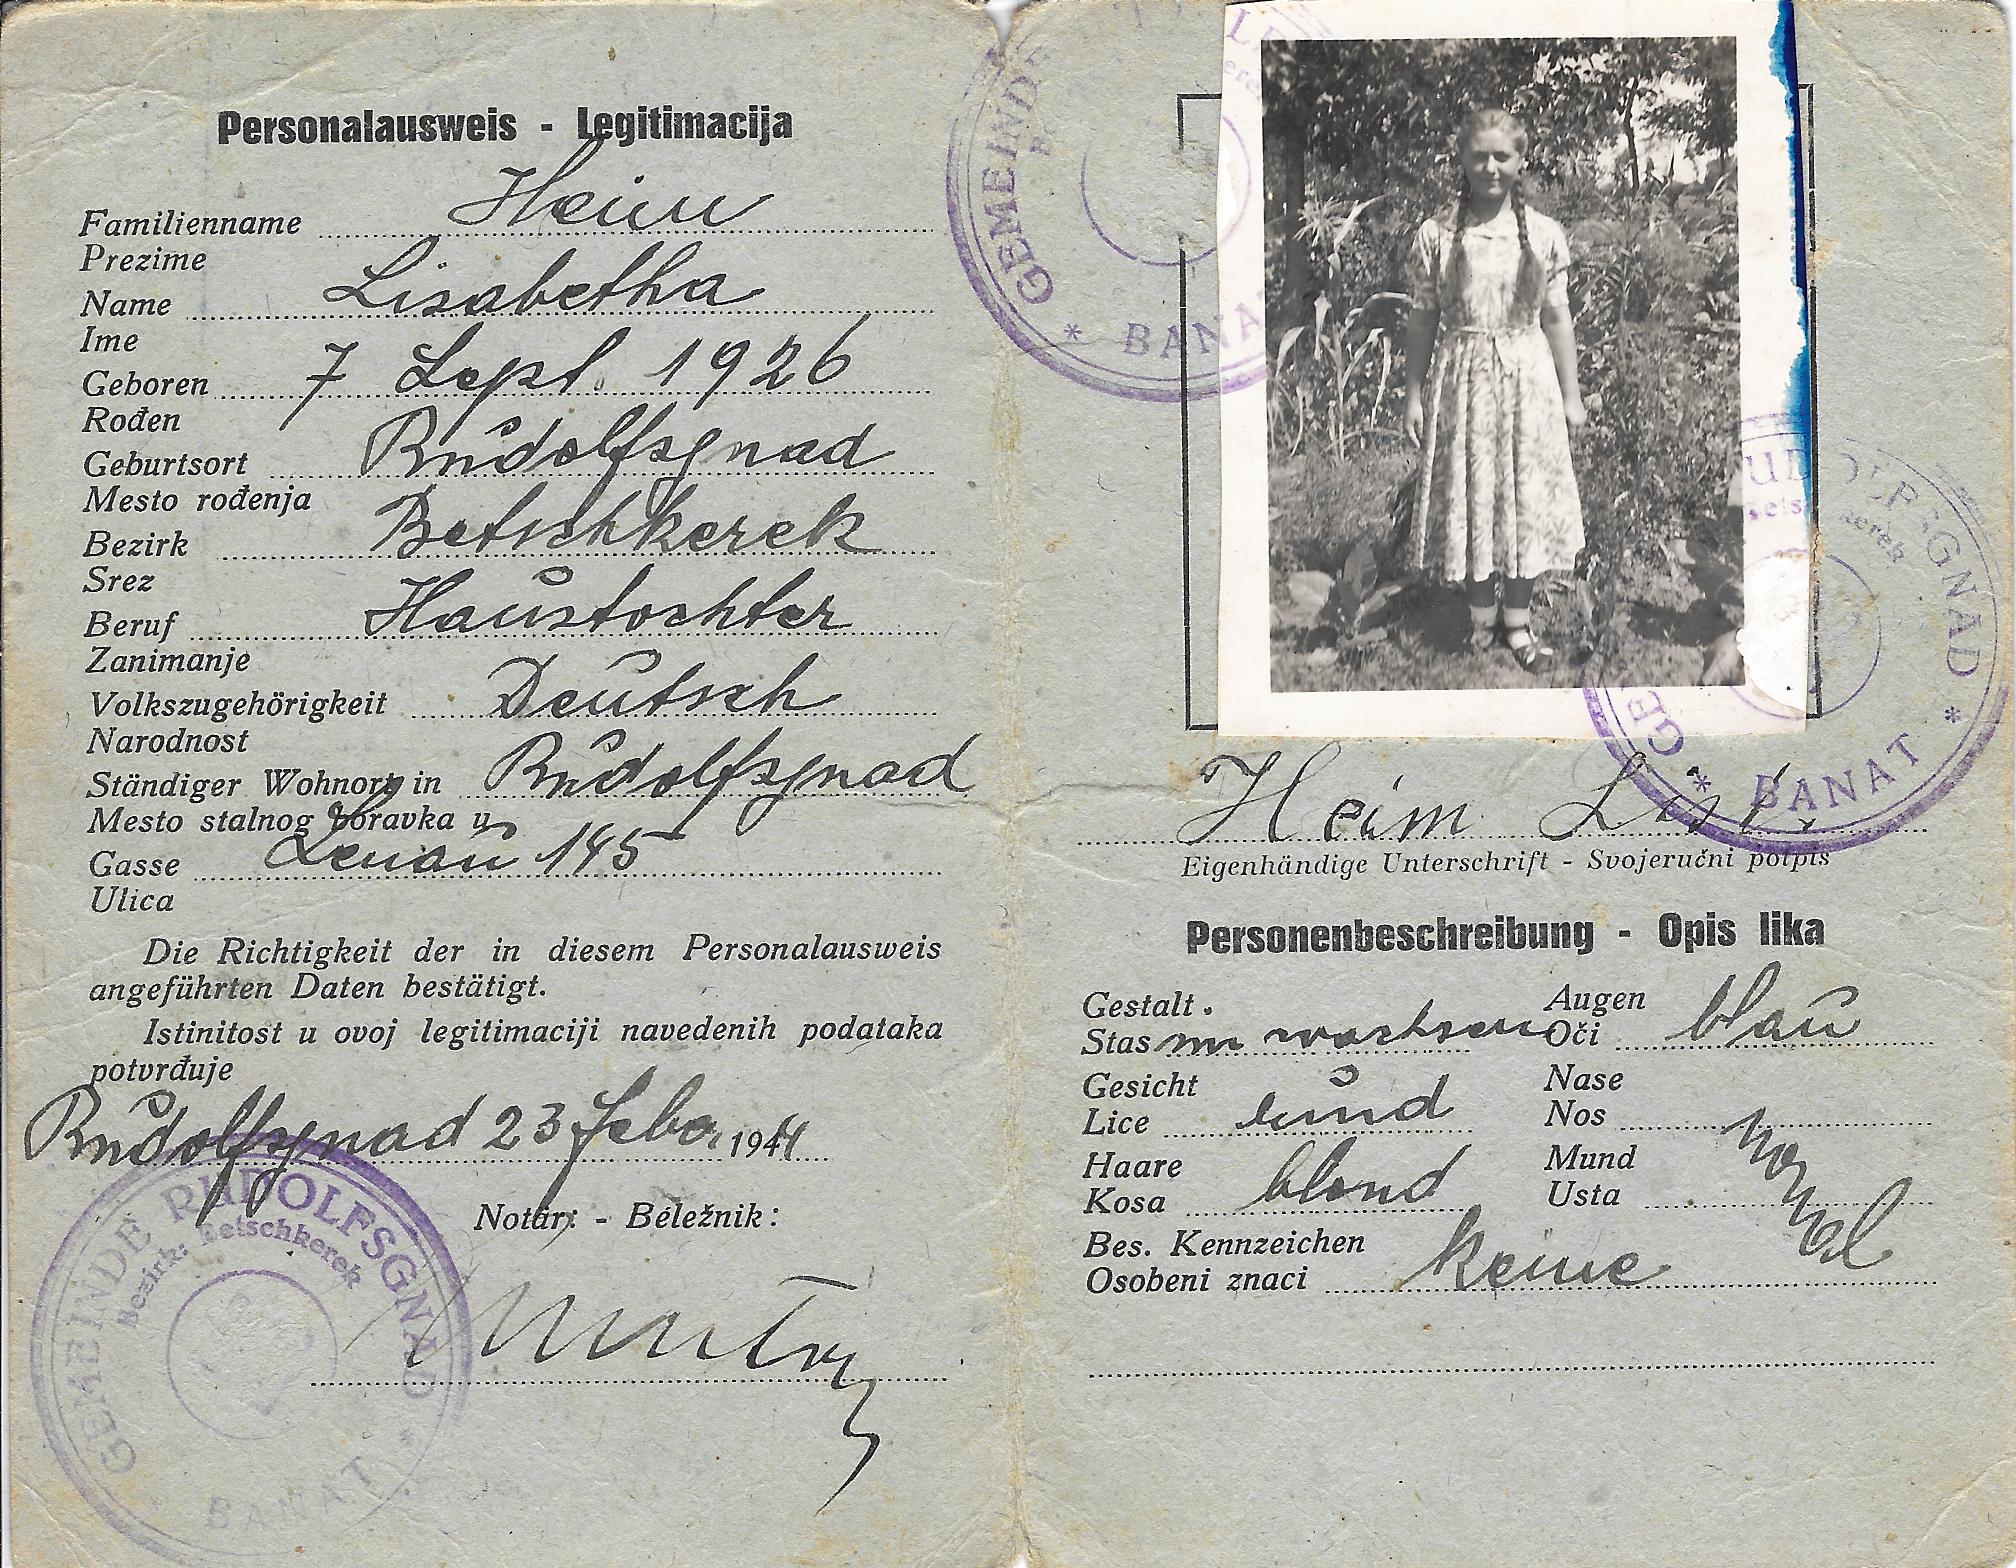 Personalausweis - Legitimacija
Familienname Heim
Prezime
Name Lisabetha
Ime
Geboren 7 Sept. 1926
Rođen
Geburtsort Rudolfsgnad
Mesto rođenja
Bezirk Betschkerek
Srez
Beruf Haustochter
Zanimanje
Volkszugehörigkeit Deutsch
Narodnost
Ständiger Wohnort in Rudolfsgnad
Mesto stalnog boravka u
Gasse Lenau 145
Ulica
Die Richtigkeit der in diesem Personalausweis
angeführten Daten bestätigt.
Istinitost u ovoj legitimaciji navedenih podataka
potvrđuje
Rudolfsgnad 23 Feba. 1944
Notär: - Beležnik:
GEMEINDE RUDOLFSGNAD
Bezirk: Betschkerek
* BANAT *
GEMEINDE
* BANAT
RUDOLFSGNAD
* BANAT *
Heim Lisi
Eigenhändige Unterschrift - Svojeručni potpis
Personenbeschreibung - Opis lika
Gestalt.
Stas
Augen
Oči blau
Gesicht
Lice rund
Nase
Nos
Haare
Kosa blond
Mund
Usta
normal
Bes. Kennzeichen
Osobeni znaci keine